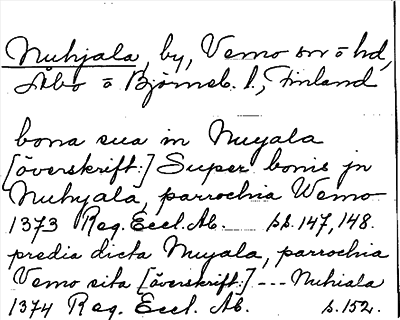 Nuhjala, by, Vemo sn ō hd,
Åbo ō Björneb. l., Finland
bona sua in Nuyala
[överskrift:] Super bonis jn
Nuhyala, parrochia Wemo
1373 Reg. Eccl. Ab. ss. 147, 148.
predia dicta Nuyala, parrochia
Vemo sita [överskrift:] --- Nuhiala
1374 Reg. Eccl. Ab. s. 152.